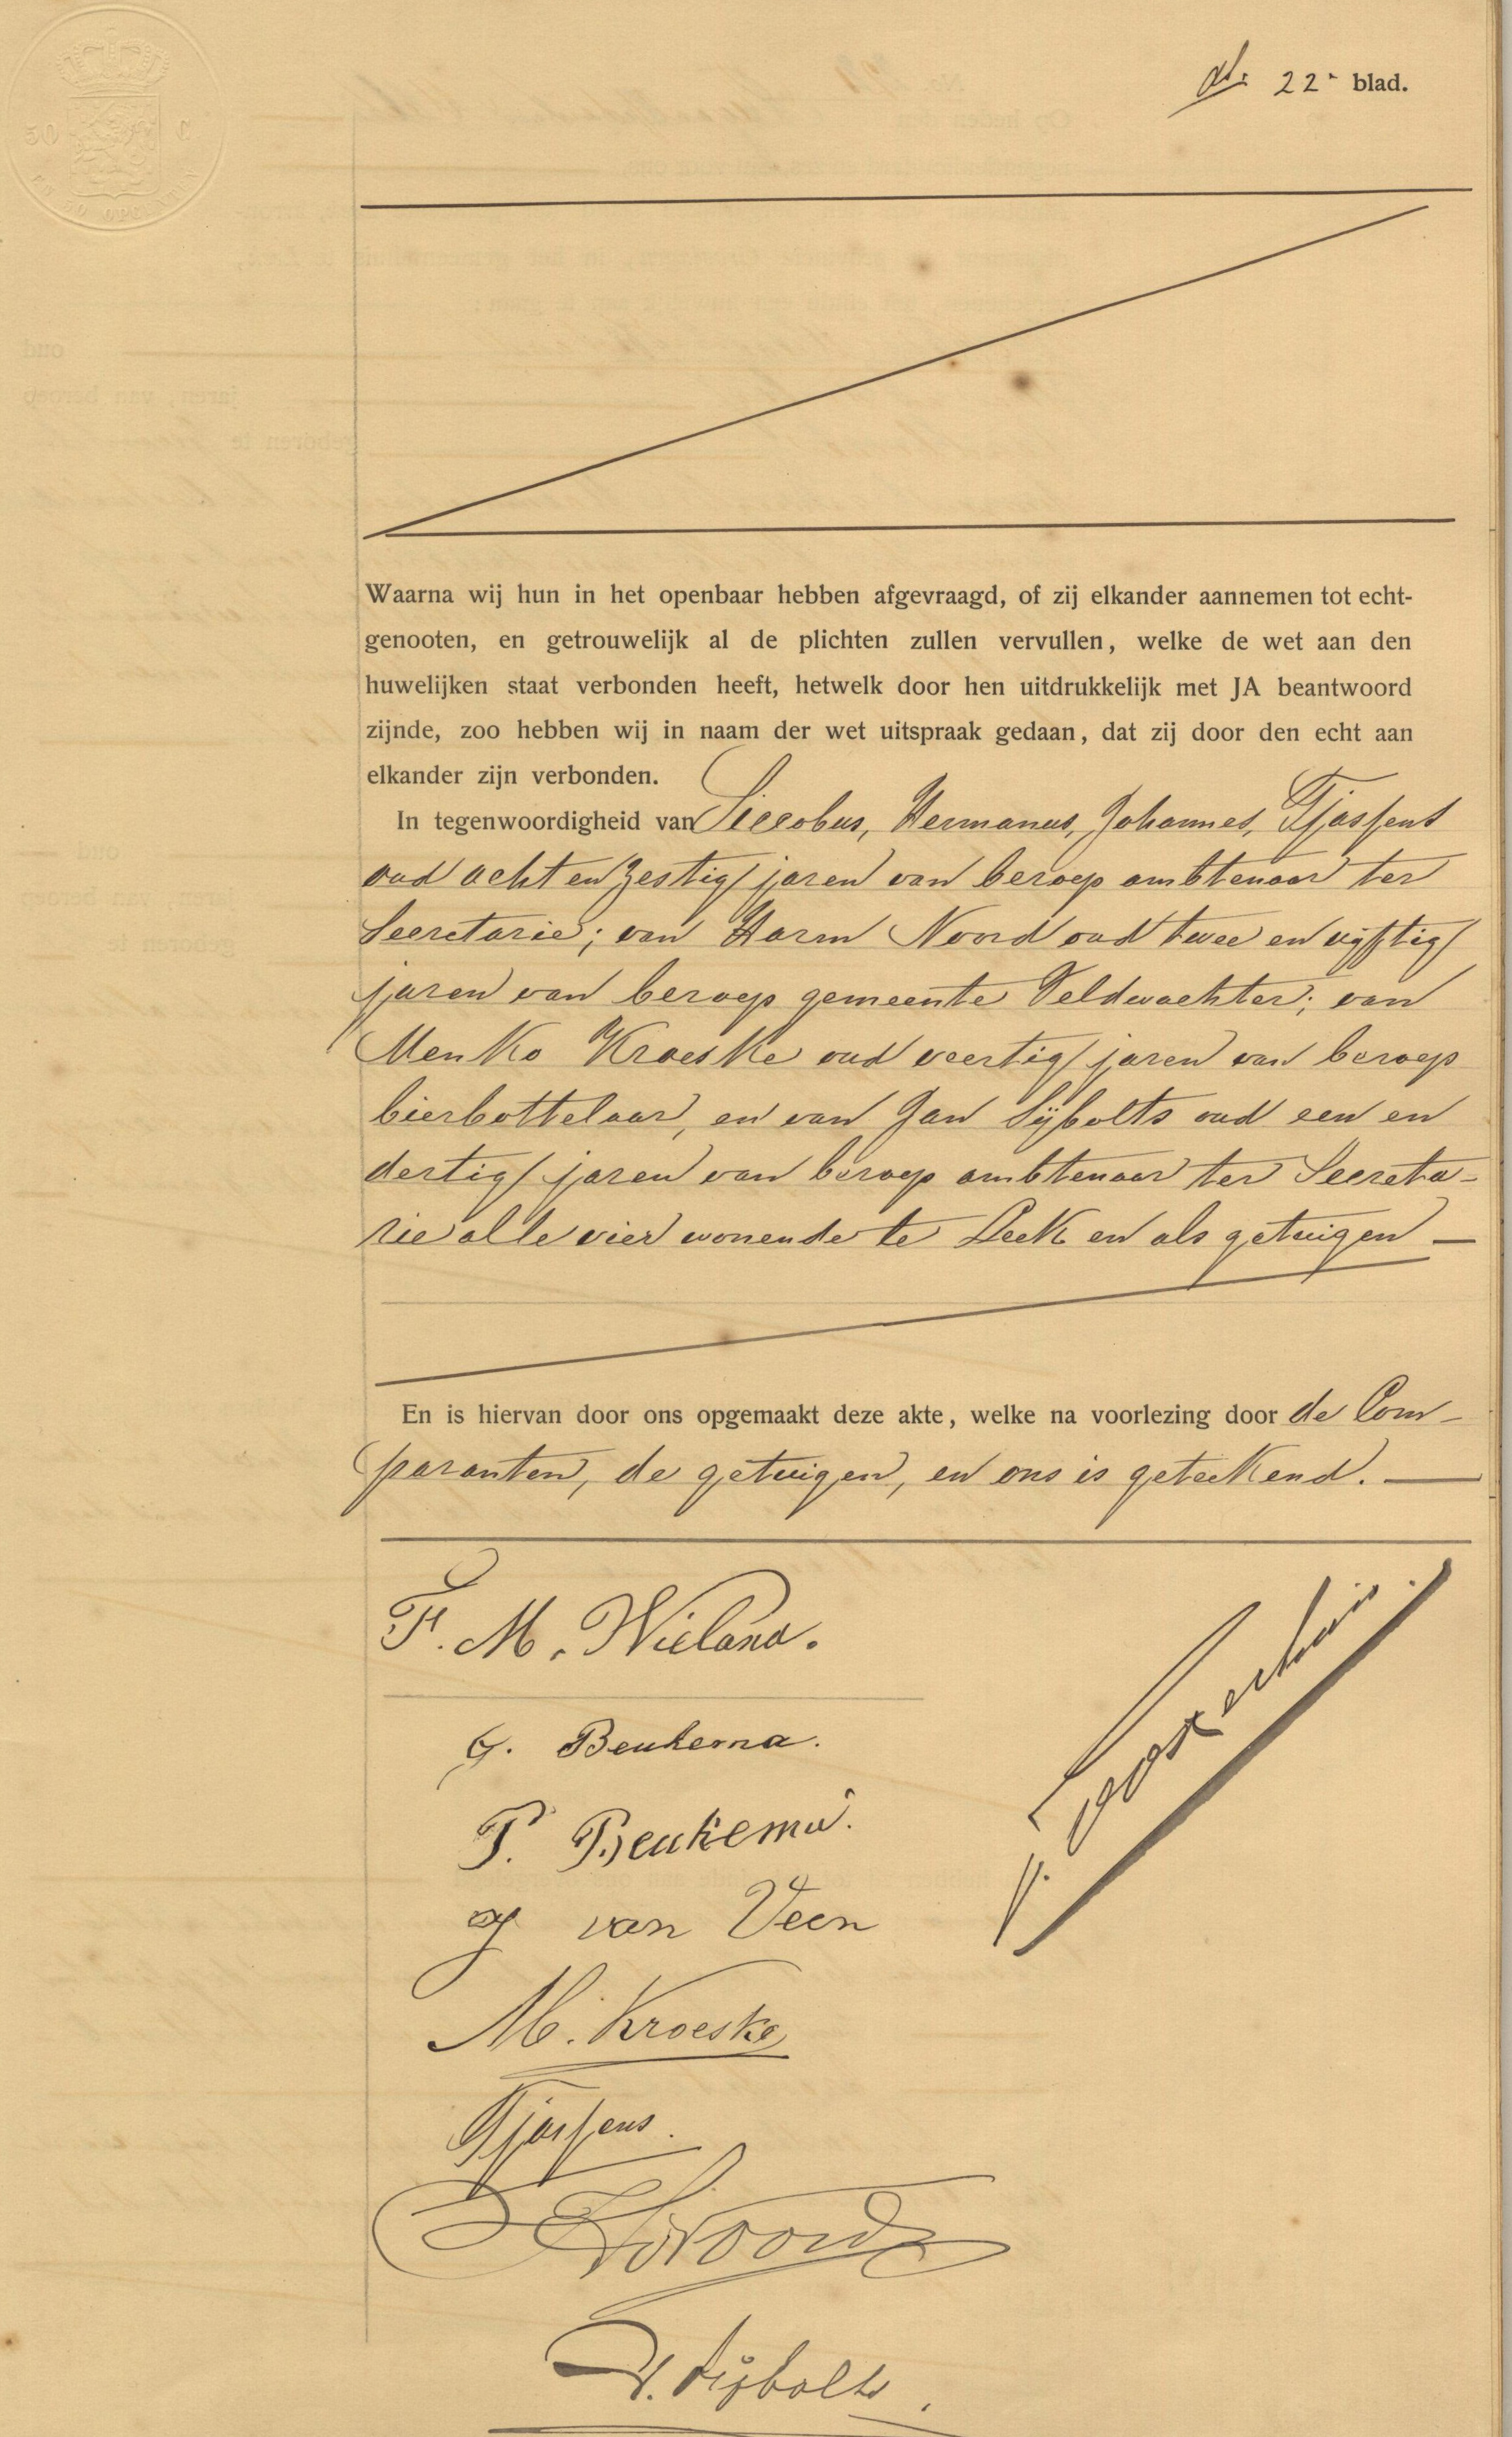 22e blad.
50 C
Waarna wij hun in het openbaar hebben afgevraagd, of zij elkander aannemen tot echt-
genooten, en getrouwelijk al de plichten zullen vervullen, welke de wet aan den
huwelijken staat verbonden heeft, hetwelk door hen uitdrukkelijk met JA beantwoord
zijnde, zoo hebben wij in naam der wet uitspraak gedaan, dat zij door den echt aan
elkander zijn verbonden.
In tegenwoordigheid van Siccobus, Hermanus, Johannes, Tjassens
oud acht en zestig jaren van beroep ambtenaar ter
Secretarie; van Harm Noord oud twee en vijftig
jaren van beroep gemeente Veldwachter; van
Menko Kroeske oud veertig jaren van beroep
bierbottelaar, en van Jan Sijbolts oud een en
dertig jaren van beroep ambtenaar ter Secreta-
rie alle vier wonende te Leek en als getuigen —
En is hiervan door ons opgemaakt deze akte, welke na voorlezing door de Com-
paranten, de getuigen, en ons is geteekend. —
F. M. Wieland.
G. Beukema.
P. Beukema.
J van Veen
M. Kroeske
Tjassens.
H Noord
J. Sijbolts.